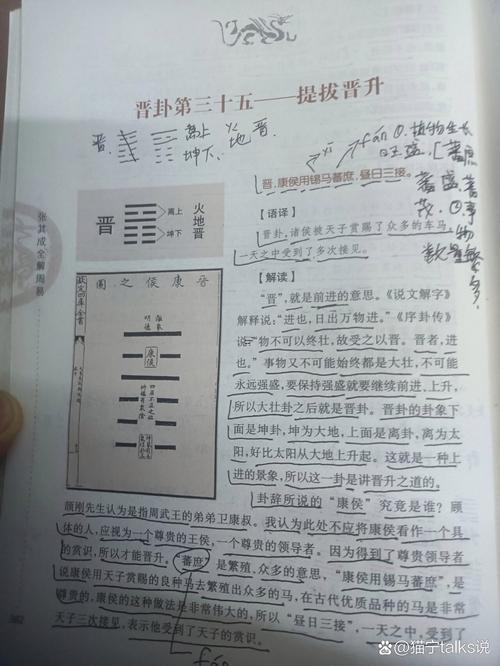 晋卦第三十五——提拔晋升
晋
离上
坤下
火地晋
fán ①.植物生长
旺盛,[蕃庶
蕃盛 蕃
茂. ②.事物
数量繁多.
xī
晋,康侯用锡马蕃庶,昼日三接。
【语译】
晋卦,诸侯被天子赏赐了众多的车马,
一天之中受到了多次接见。
晋
离上
坤下
火地晋
张其成全解周易
【解读】
“晋”,就是前进的意思。《说文解字》
解释说:“进也,日出万物进。”《序卦传》
说“物不可以终壮,故受之以晋。晋者,进
也。”事物又不可能始终都是大壮,不可能
永远强盛,要保持强盛就要继续前进、上升,
所以大壮卦之后就是晋卦。晋卦的卦象下
面是坤卦,坤为大地,上面是离卦,离为太
阳,好比太阳从大地上升起。这就是一种上
进的景象,所以这一卦是讲晋升之道的。
晋康侯之图
钦定四库全书
明德
康侯
卦辞所说的“康侯”究竟是谁?顾
颉刚先生认为是指周武王的弟弟卫康叔。我认为此处不应将康侯看作一个具
体的人,应视为一个尊贵的王侯,一个尊贵的领导者。因为得到了尊贵领导者
的赏识,所以才能晋升。“蕃庶”是繁殖、众多的意思,“康侯用锡马蕃庶”,是
说康侯用天子赏赐的良种马去繁殖出众多的马,在古代优质品种的马是非常
尊贵的,康侯的这种做法是非常伟大的,所以“昼日三接”,一天之中,受到了
天子三次接见,表示他受到了天子的赏识。
fán
382
@猫宁talks说